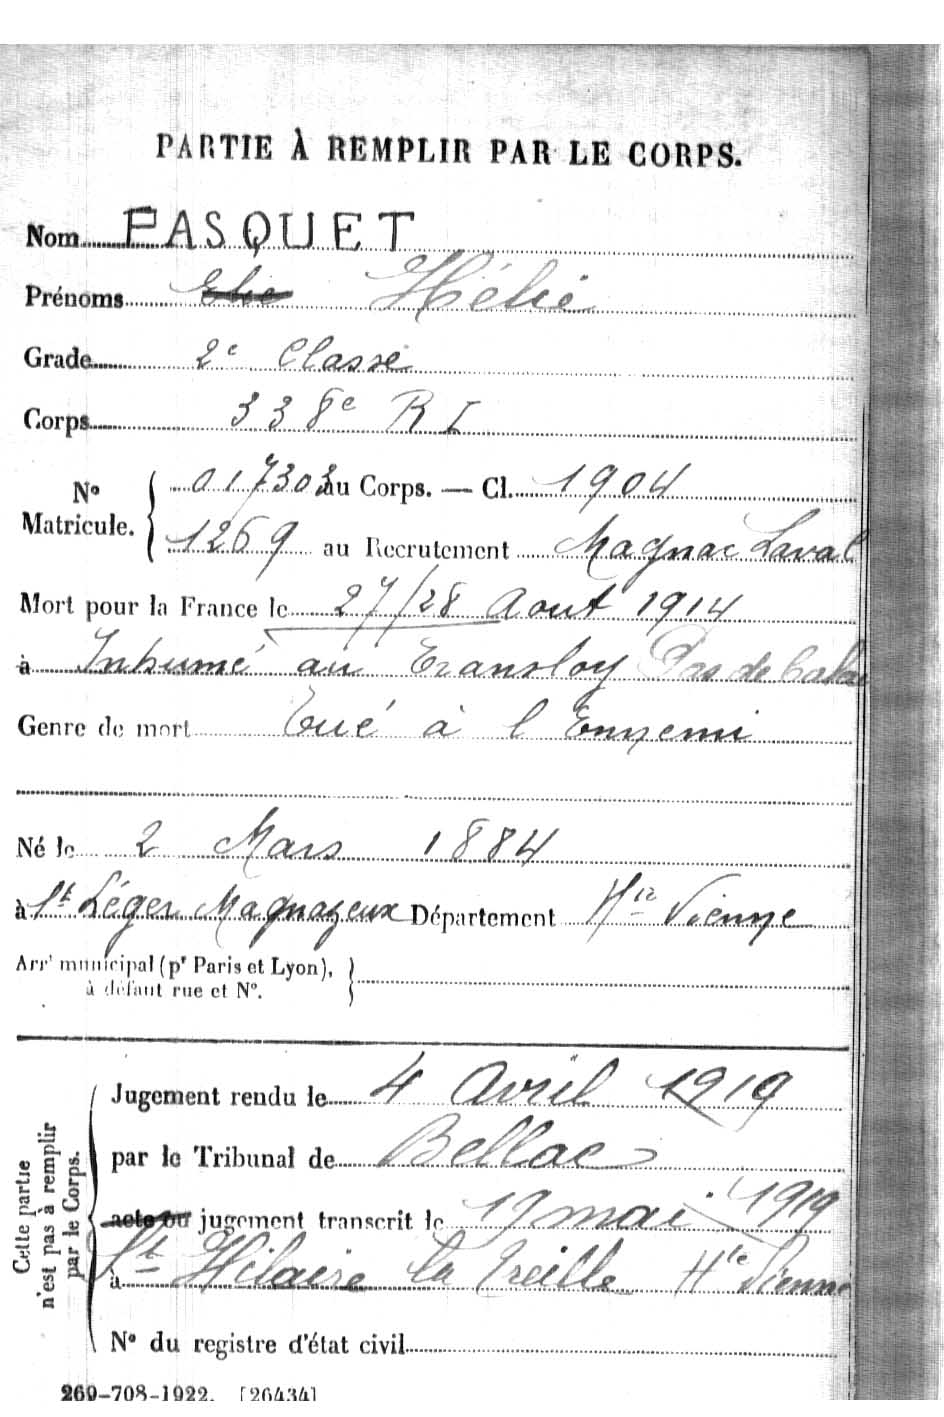 PARTIE À REMPLIR PAR LE CORPS.
Nom PASQUET
Prénoms Elie Hélie
Grade 2e Classe
Corps 338e R I
No Matricule. 017303 au Corps. — Cl. 1904
1269 au Recrutement Magnac Laval
Mort pour la France le 27/28 Aout 1914
à Inhumé au Transloy Pas de Calais
Genre de mort Tué à l Ennemi
Né le 2 Mars 1884
à St Léger Magnazeux Département Hte Vienne
Arrt municipal (pr Paris et Lyon),
à défaut rue et No.
Cette partie n'est pas à remplir par le Corps.
Jugement rendu le 4 Avril 1919
par le Tribunal de Bellac
acte ou jugement transcrit le 19 mai 1919
à St Hilaire la Treille Hte Vienne
No du registre d'état civil
269-708-1922. [26434]